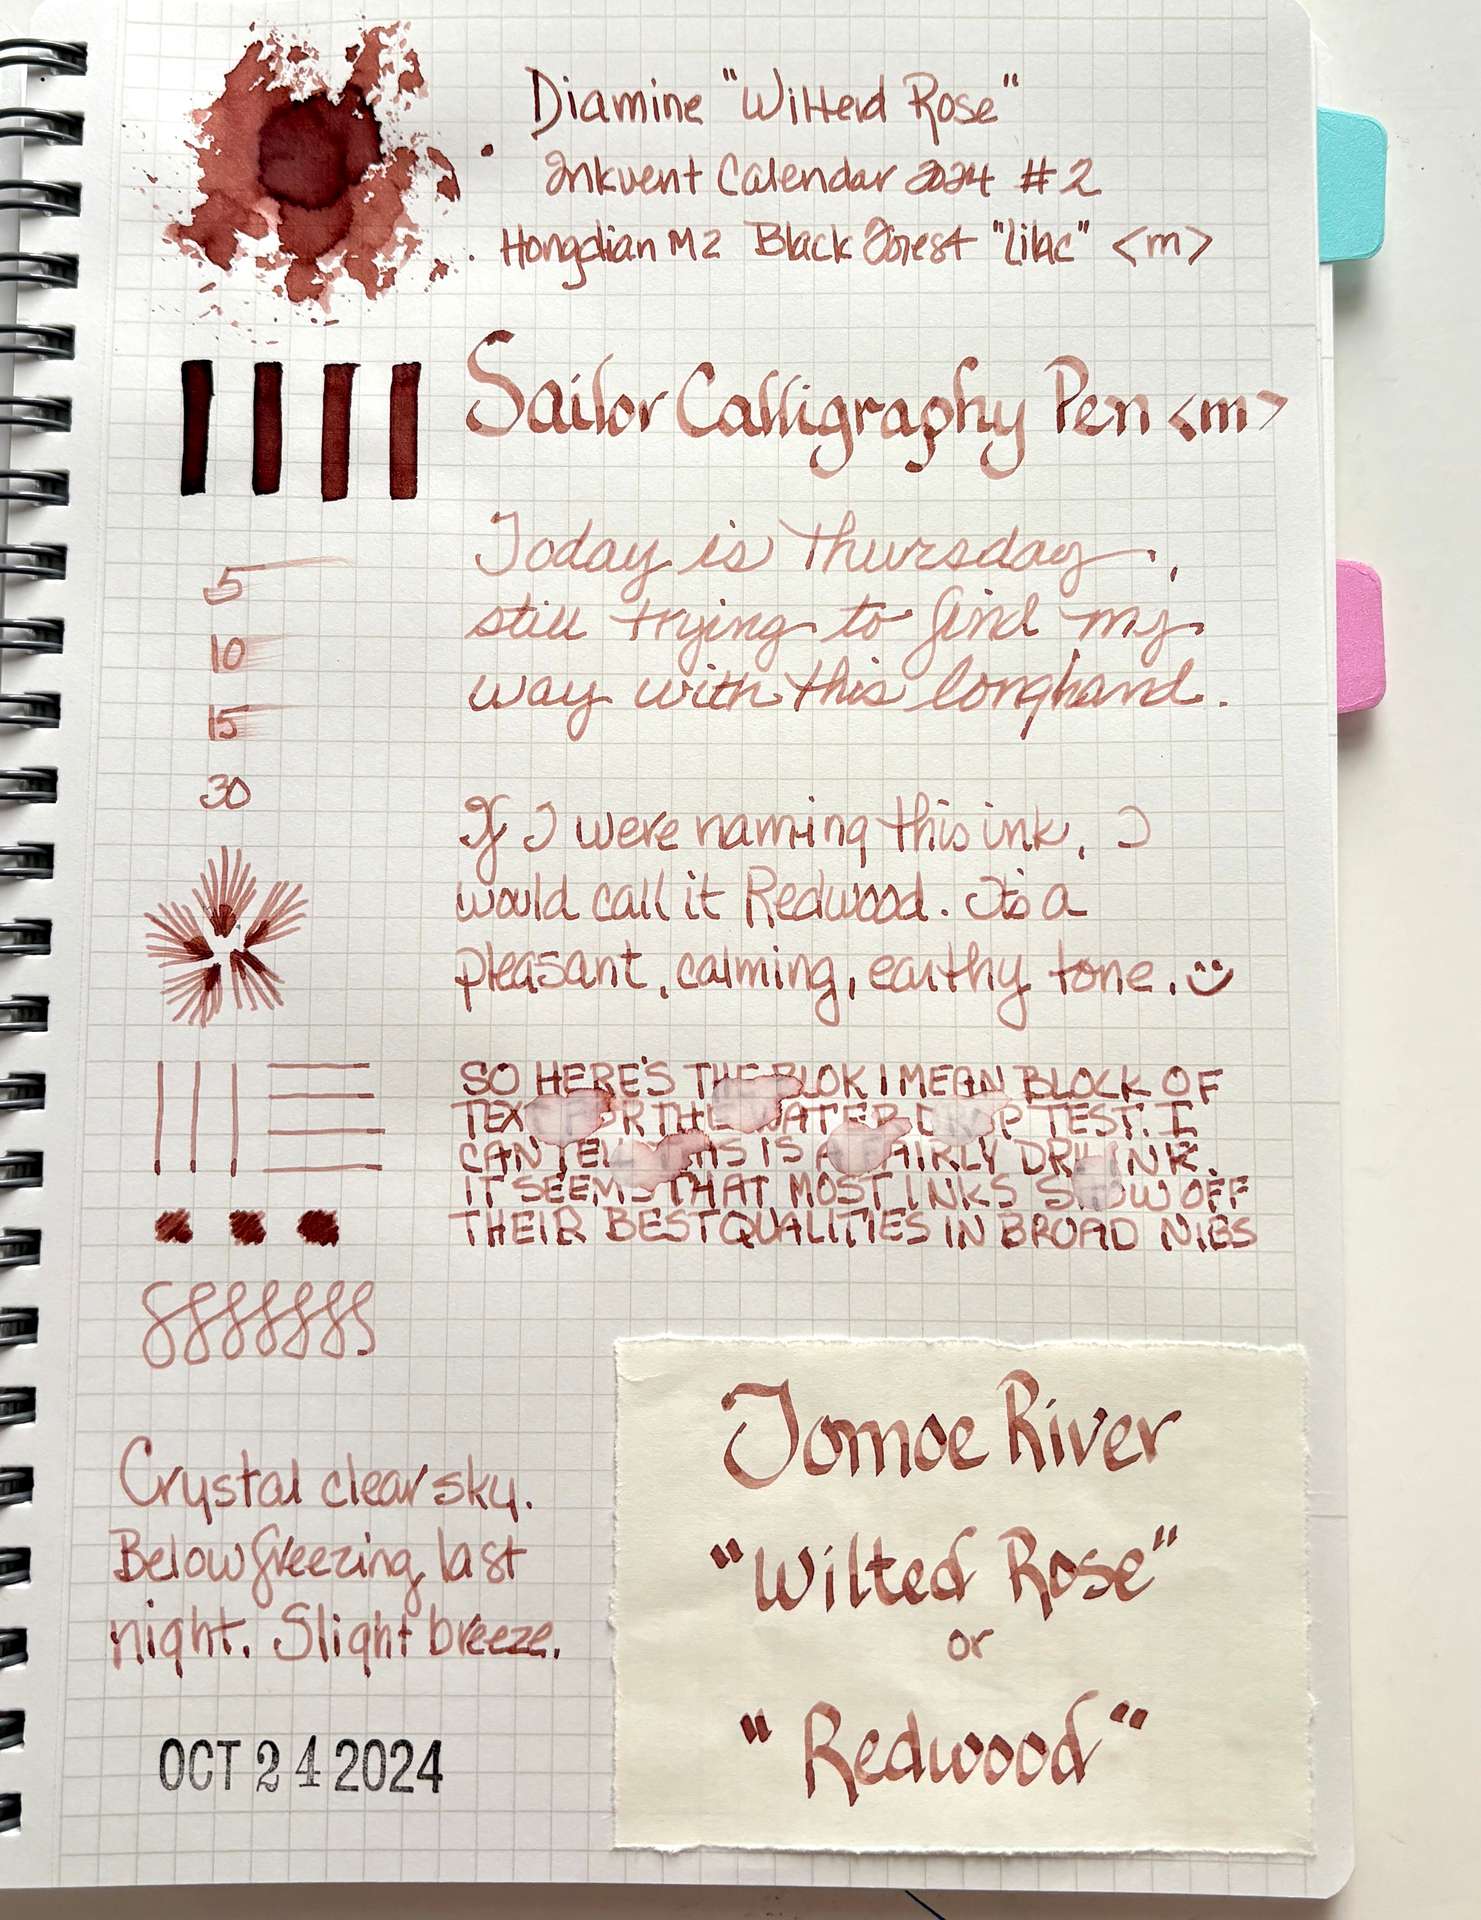 Diamine "Wilted Rose"
Inkvent Calendar 2024 #2
Hongdian M2 Black Forest "Lilac" <m>
Sailor Calligraphy Pen <m>
5
10
15
30
Today is Thursday.,
still trying to find my
way with this longhand.
If I were naming this ink, I
would call it Redwood. It's a
pleasant, calming, earthy tone.
SO HERE'S THE BLOK I MEAN BLOCK OF
TEXT FOR THE WATER DROP TEST. I
CAN TELL THIS IS A FAIRLY DRY INK.
IT SEEMS THAT MOST INKS SHOW OFF
THEIR BEST QUALITIES IN BROAD NIBS
Crystal clear sky.
Below freezing last
night. Slight breeze.
OCT 24 2024
Tomoe River
"Wilted Rose"
or
"Redwood"